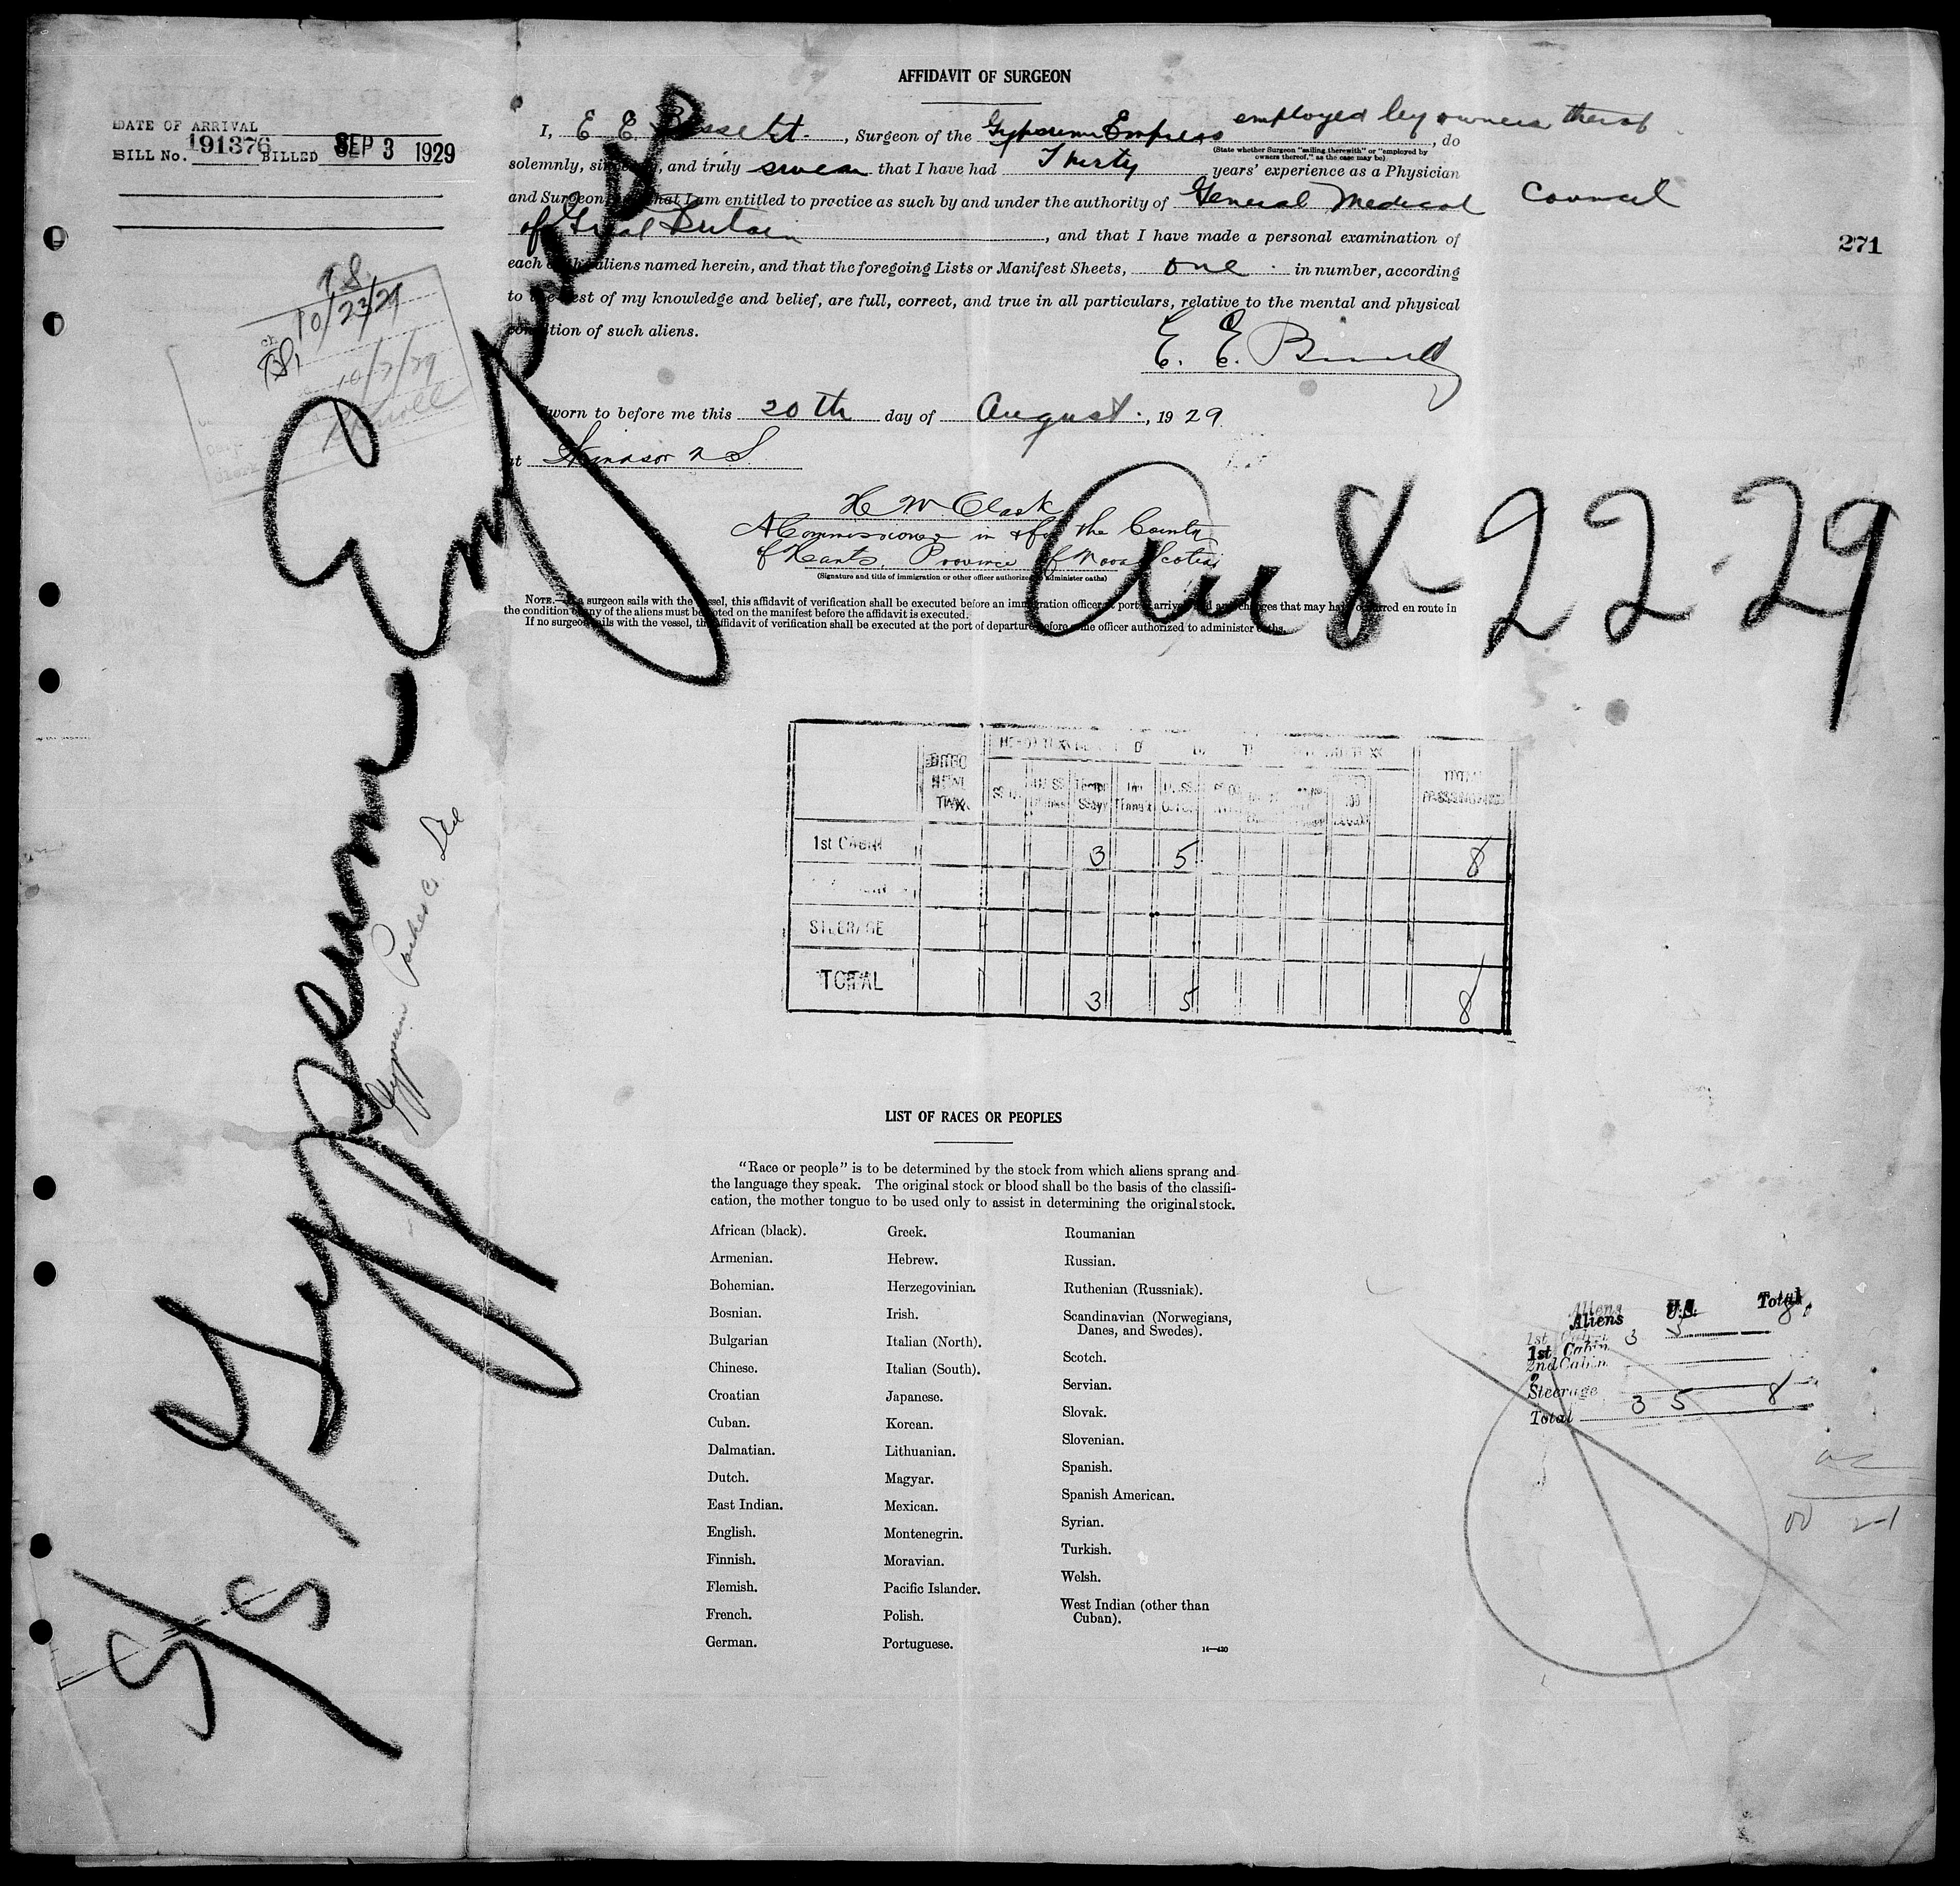 AFFIDAVIT OF SURGEON
DATE OF ARRIVAL
BILL No. 191376 BILLED SEP 3 1929
I, E E Bissett, Surgeon of the Gypsum Empress employed by owners thereof, do
(State whether Surgeon "sailing therewith" or "employed by
owners thereof," as the case may be)
solemnly, sincerely, and truly swear that I have had Thirty years' experience as a Physician
and Surgeon and that I am entitled to practice as such by and under the authority of General Medical Council
of Great Britain, and that I have made a personal examination of
each of the aliens named herein, and that the foregoing Lists or Manifest Sheets, one in number, according
to the best of my knowledge and belief, are full, correct, and true in all particulars, relative to the mental and physical
condition of such aliens.
271
10/23/29
10/2/29
E. E. Bissett
Sworn to before me this 20th day of August, 1929
at Windsor N S.
H W Clark
A Commissioner in & for the County
of Hants, Province of Nova Scotia
(Signature and title of immigration or other officer authorized to administer oaths)
NOTE.—If a surgeon sails with the vessel, this affidavit of verification shall be executed before an immigration officer at port of arrival and any changes that may have occurred en route in
the condition of any of the aliens must be noted on the manifest before the affidavit is executed.
If no surgeon sails with the vessel, this affidavit of verification shall be executed at the port of departure before some officer authorized to administer oaths.
S/S Gypsum Empress
Arr 8-22-29
Gypsum Packet Co. Ltd
TOTAL PASSENGERS
1st CABIN 3 5 8
STEERAGE
TOTAL 3 5 8
LIST OF RACES OR PEOPLES
"Race or people" is to be determined by the stock from which aliens sprang and
the language they speak. The original stock or blood shall be the basis of the classifi-
cation, the mother tongue to be used only to assist in determining the original stock.
African (black).
Armenian.
Bohemian.
Bosnian.
Bulgarian
Chinese.
Croatian
Cuban.
Dalmatian.
Dutch.
East Indian.
English.
Finnish.
Flemish.
French.
German.
Greek.
Hebrew.
Herzegovinian.
Irish.
Italian (North).
Italian (South).
Japanese.
Korean.
Lithuanian.
Magyar.
Mexican.
Montenegrin.
Moravian.
Pacific Islander.
Polish.
Portuguese.
Roumanian
Russian.
Ruthenian (Russniak).
Scandinavian (Norwegians,
Danes, and Swedes).
Scotch.
Servian.
Slovak.
Slovenian.
Spanish.
Spanish American.
Syrian.
Turkish.
Welsh.
West Indian (other than
Cuban).
14—430
Aliens U.S. Total
1st Cabin 3 5 8
2nd Cabin
Steerage
Total 3 5 8